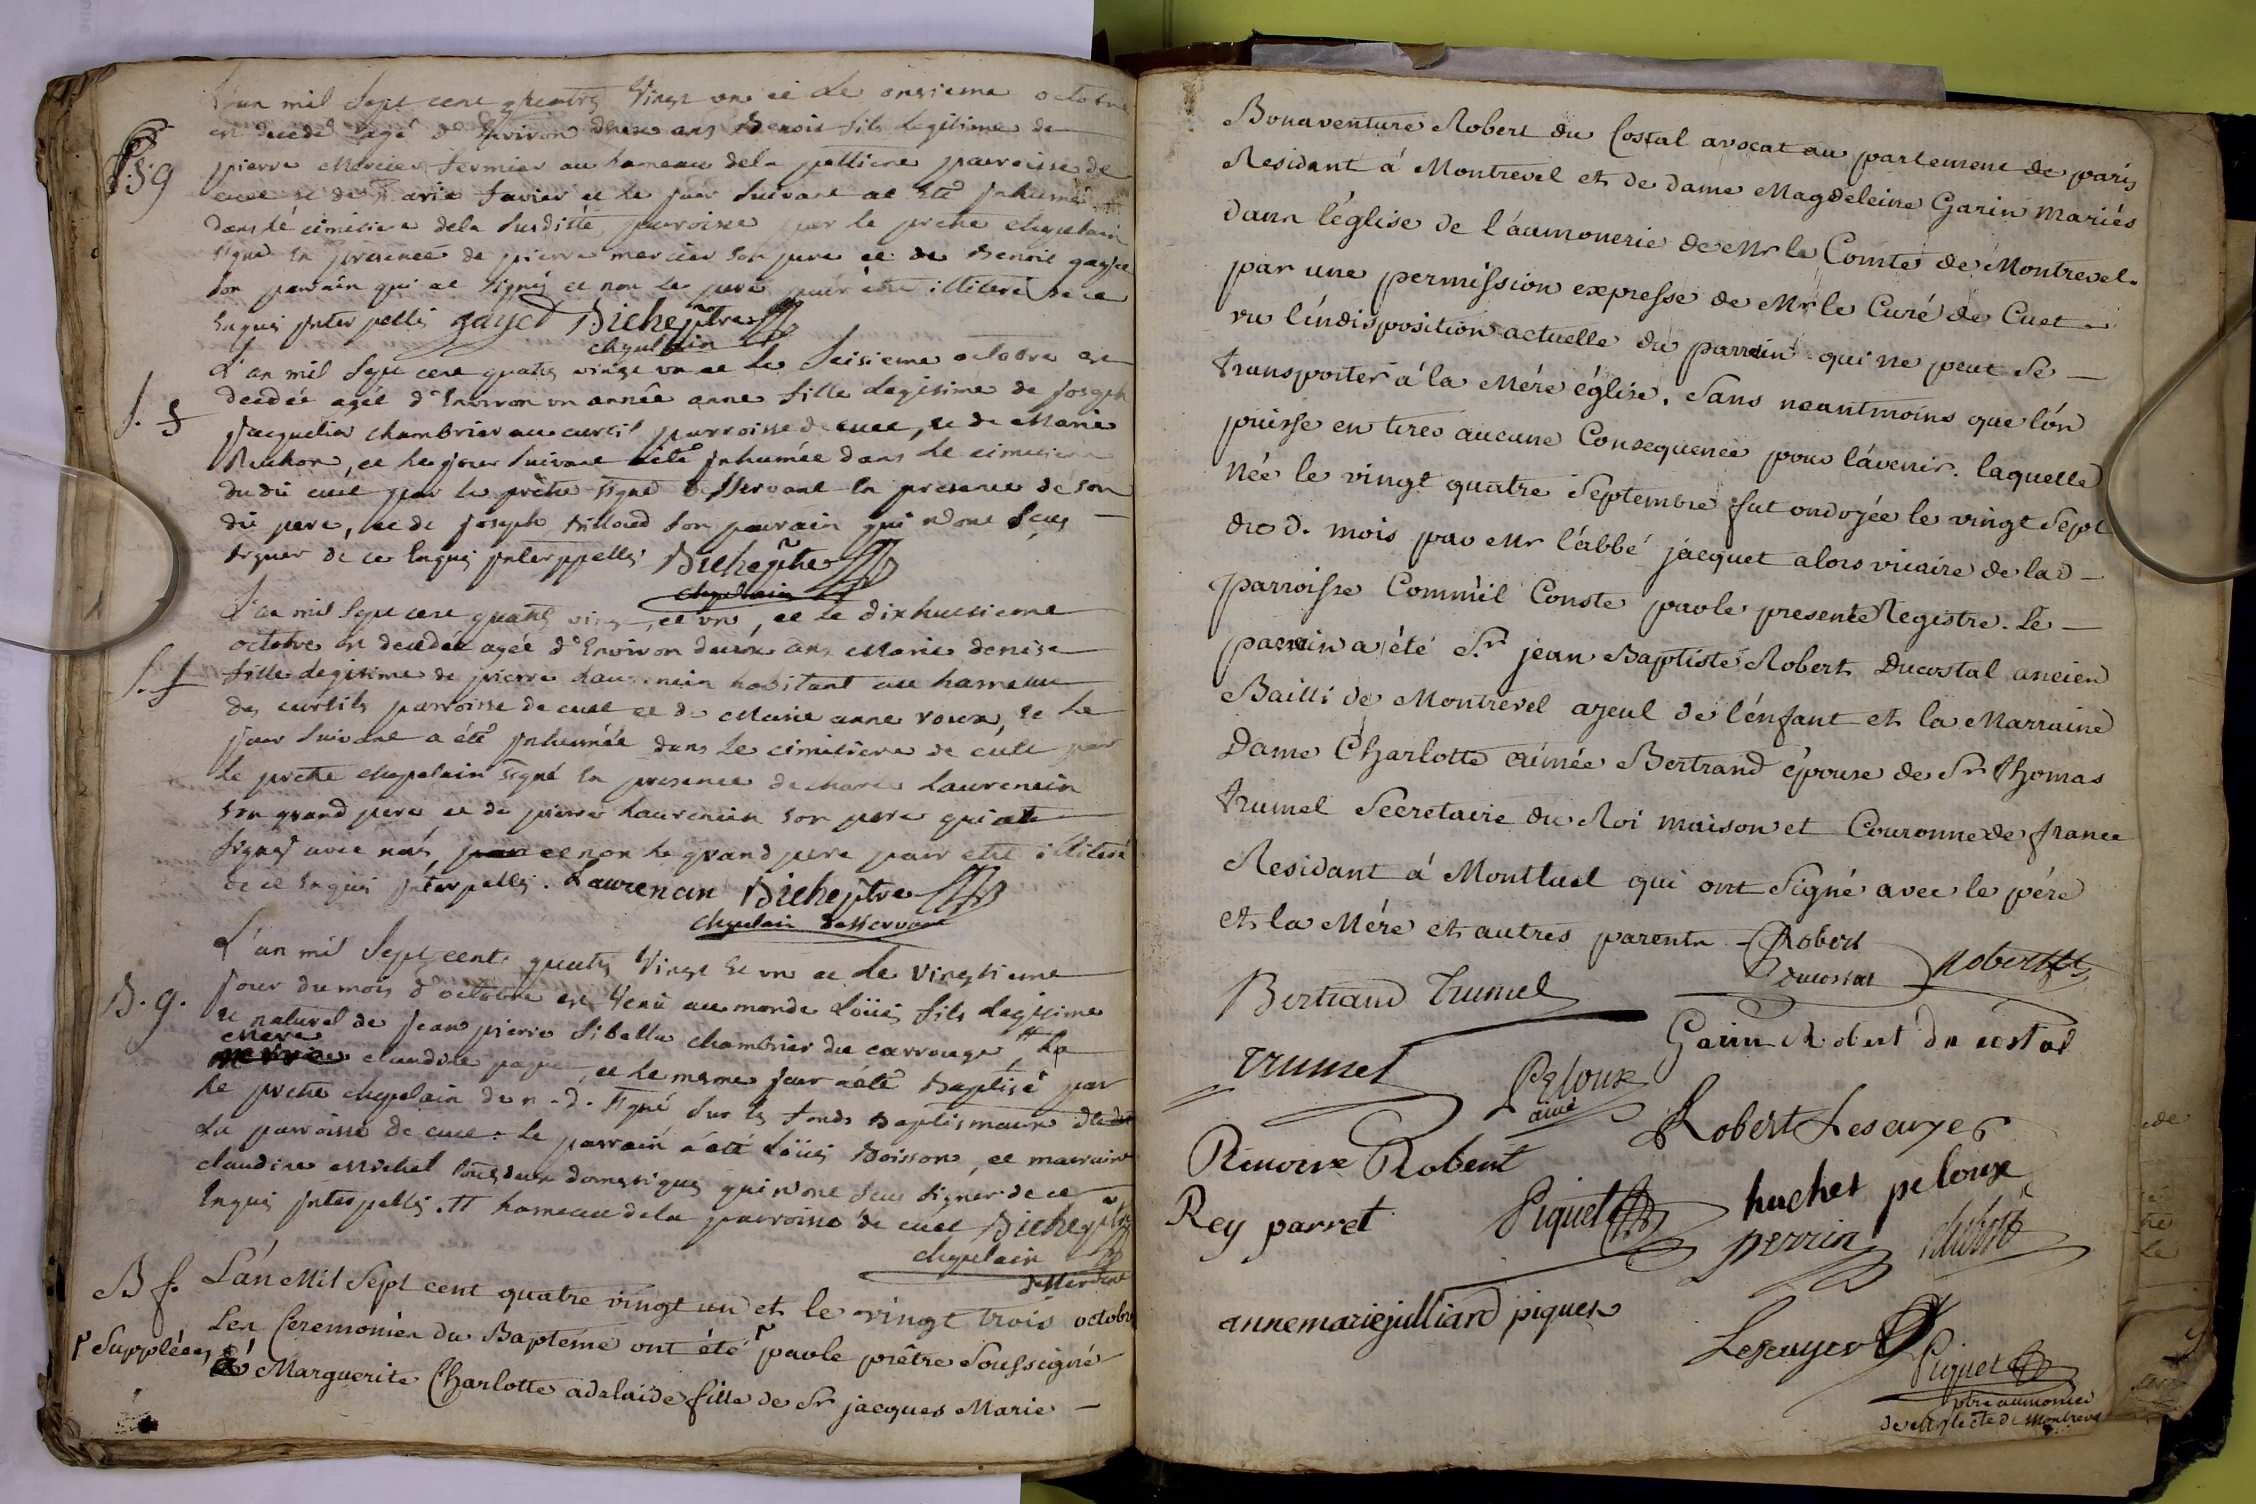 L'an mil Sept cent quatre Vingt un et Le onsieme octobre
est decedé agé d'Environ deux ans Benoit fils legitime de
S. g
pierre Mercier fermier au hameau dela pelliere parroisse de
cuet et de Marie favier et le jour suivant at Eté Jnhumé
dans le cimetiere dela susditte parroisse par le pretre chapelain
signé En presence de pierre mercier son pere et de Benoit gayet
son parrain qui at signés et non le pere pour être illiteré de ce
Enquis jnterpellés gayet Biche ptre
chapelain
L'an mil Sept cent quatre vingt un et le Seisieme octobre est
decedée agée d'Environ un année anne fille legitime de joseph
S. f
jacquelin chambrier au curtil parroisse de cuet, et de Marie
, et le jour suivant a été jnhumée dans le cimetiere
du dit cuet par le prêtre signé desservant En presence de son
dit pere, et de joseph son parrain qui n'ont Sçus
signer de ce Enquis jnterppellés Biche ptre
chapelain
L'an mil Sept cent quatre vingt, et un, et le dixhuitieme
octobre est decedée agée d'Environ deux ans Marie denise
S. f
fille legitime de pierre Laurencin habitant au hameau
des curtils parroisse de cuet et de Marie anne roux, et le
jour suivant a été jnhumée dans le cimetiere de cuet par
le pretre chapelain signé En presence de charle Laurencin
son grand pere et de pierre Laurencin son pere qui at
signés avec nous, et non le grand pere pour etre illiteré
de ce Enquis jnterpellés. Laurencin Biche ptre
chapelain desservant
L'an mil Sept cent quatre Vingt Et un et Le Vingtieme
B. g.
jour du mois d'octobre est Venu au monde Loüis fils legitime
et naturel de jean pierre Sibella chambrier du carrouge, #La
Mere
claudine , et le meme jour a été Baptisé par
le pretre chapelain de n. d. signé sur les fonds Baptismaux de
La parroisse de cuet. le parrain a été Loüis Boisson, et marraine
claudine Michel tous deux domestiques qui n'ont sçu signer de ce
Enquis jnterpellés. # hameau dela parroisse de cuet Biche ptre
chapelain
desservant
B f. L'an Mil Sept cent quatre vingt un et le vingt trois octobre
Les Ceremonies du Bapteme ont été parle prêtre Soussigné
Suppléées à Marguerite Charlotte adelaide fille de Sr jacques Marie —
Bonaventure Robert du Costal avocat au parlement de paris
Residant á Montrevel et de dame Magdeleine Garin mariés
dans l'église de l'aumonerie de Mr le Comte de Montrevel.
par une permission expresse de Mr le Curé de Cuet
vu l'indisposition actuelle du parrain qui ne peut Se —
transporter á la Mére église. Sans neantmoins que l'on
puisse en tirer aucune Consequence pour l'avenir. laquelle
Née le vingt quatre Septembre fut ondoyée le vingt Sept
du d. mois par Mr l'abbé jacquet alors vicaire de lad —
parroisse Comm'il Conste parle present Registre. Le —
parrain a été Sr. jean Baptiste Robert Ducostal ancien
Bailli de Montrevel ayeul de l'énfant et la Marraine
Dame Charlotte aimée Bertrand épouse de Sr thomas
trumel Secretaire du Roi maison et Couronne de france
Residant á Montluel qui ont Signé avec le pére
et la Mére et autres parents. Robert
Ducostal Robert
Bertrand Trumel
Garin Robert du costal
Trumel
Peloux
ainé
Robert Lescuyer
Renoux Robert
huchet peloux
Rey parret
Piquet
perrin
anne marie julliard piquet
Lescuyer
Piquet
ptre aumonier
de Mr le Cte de Montrevel